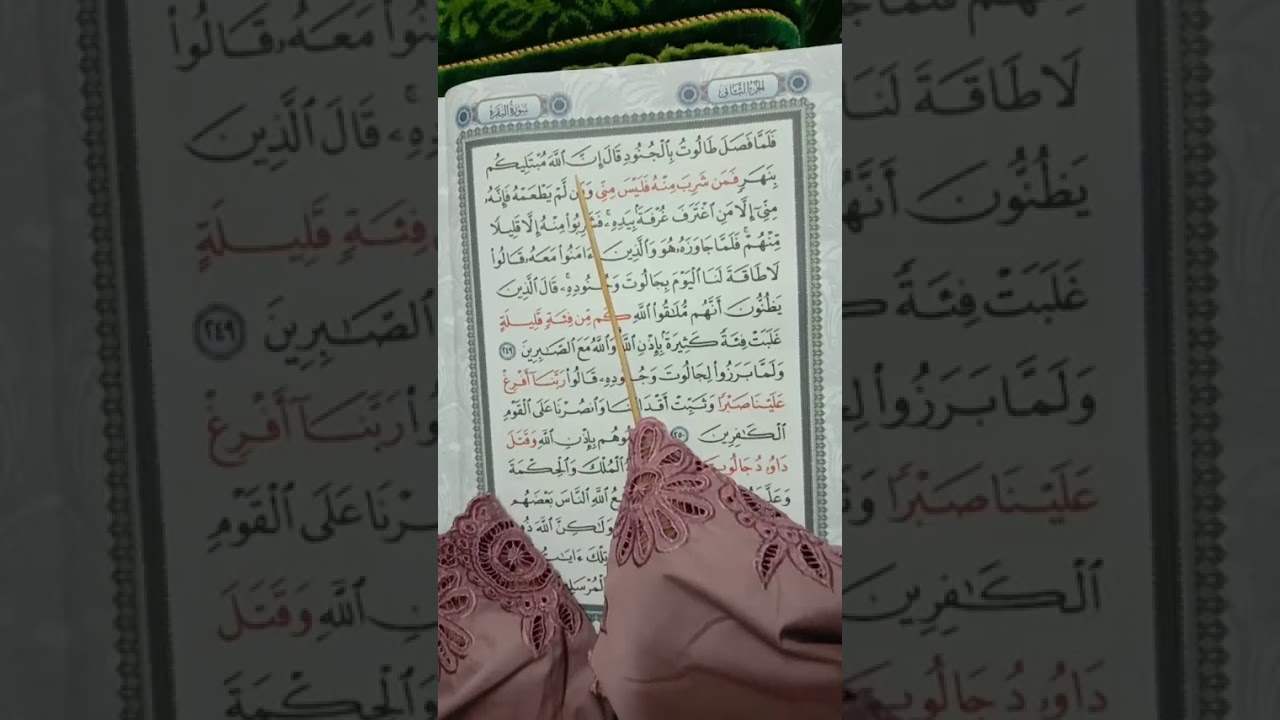 الجزء الثاني
سورة البقرة
فَلَمَّا فَصَلَ طَالُوتُ بِالْجُنُودِ قَالَ إِنَّ ٱللَّهَ مُبْتَلِيكُم
بِنَهَرٍ فَمَن شَرِبَ مِنْهُ فَلَيْسَ مِنِّي لَّمْ يَطْعَمْهُ فَإِنَّهُۥ
مِنِّيٓ إِلَّا مَنِ ٱغْتَرَفَ غُرْفَةًۢ بِيَدِهِۦ ۚ مِنْهُ إِلَّا قَلِيلًا
مِّنْهُمْ ۚ فَلَمَّا جَاوَزَهُۥ هُوَ وَٱلَّذِينَ ءَامَنُوا۟ مَعَهُۥ قَالُوا۟
لَا طَاقَةَ لَنَا ٱلْيَوْمَ بِجَالُوتَ وَجُنُودِهِۦ ۚ قَالَ ٱلَّذِينَ
يَظُنُّونَ أَنَّهُم مُّلَٰقُوا۟ ٱللَّهِ كَم مِّن فِئَةٍ قَلِيلَةٍ
غَلَبَتْ فِئَةً كَثِيرَةًۢ بِإِذْنِ ٱللَّهِ ۗ وَٱللَّهُ مَعَ ٱلصَّٰبِرِينَ ٢٤٩
وَلَمَّا بَرَزُوا۟ لِجَالُوتَ وَجُنُودِهِۦ قَالُوا۟ رَبَّنَآ أَفْرِغْ
عَلَيْنَا صَبْرًا وَثَبِّتْ أَقْدَامَنَا وَٱنصُرْنَا عَلَى ٱلْقَوْمِ
ٱلْكَٰفِرِينَ ٢٥٠ بِإِذْنِ ٱللَّهِ وَقَتَلَ
دَاوُۥدُ جَالُوتَ ٱلْمُلْكَ وَٱلْحِكْمَةَ
ٱللَّهِ ٱلنَّاسَ بَعْضَهُم
وَلَٰكِنَّ ٱللَّهَ ذُو
تِلْكَ